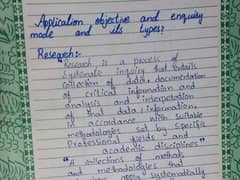 Application objective and enquiry
mode and its types?
Research:-
"Research is a process of
systematic inquiry that entails
collection of data, documentation
of critical information and
analysis and interpretation
of that data/information,
in accordance with suitable
methodologies set by specific
Professional fields and
academic disciplines"
"A collections of methods
and methodologies that
apply systematically